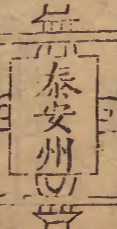 泰安州